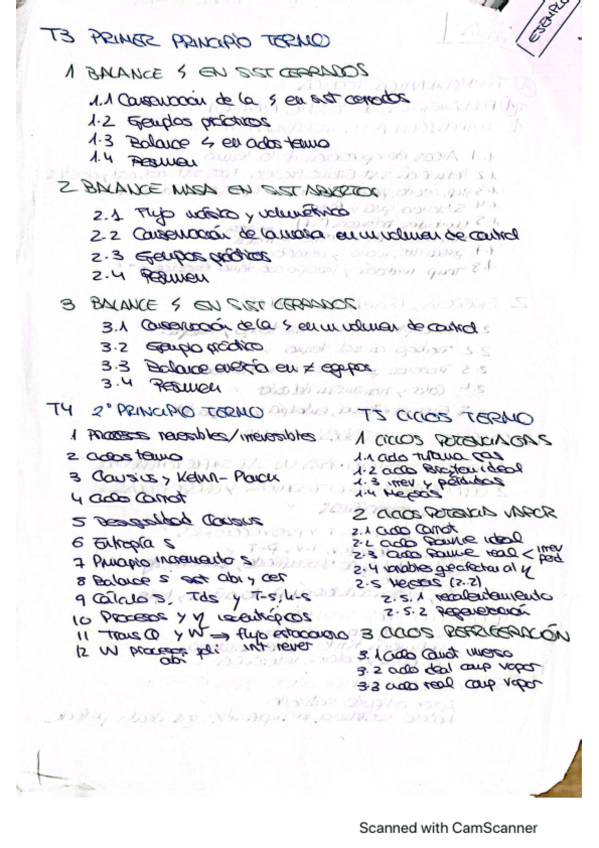 EJEMPLO
T3 PRIMER PRINCIPIO TERMO
1 BALANCE ϟ EN SIST CERRADOS
1.1 Conservación de la ϟ en sist cerrados
1.2 Ejemplos prácticos
1.3 Balance ϟ en ciclos termo
1.4 Resumen
2 BALANCE MASA EN SIST ABIERTOS
2.1 Flujo másico y volumétrico
2.2 Conservación de la masa en un volumen de control
2.3 Ejemplos prácticos
2.4 Resumen
3 BALANCE ϟ EN SIST CERRADOS
3.1 Conservación de la ϟ en un volumen de control
3.2 Ejemplo práctico
3.3 Balance energía en ≠ equipos
3.4 Resumen
T4 2º PRINCIPIO TERMO
1 Procesos reversibles/irreversibles
2 Ciclos termo
3 Clausius y Kelvin-Planck
4 Ciclo Carnot
5 Desigualdad Clausius
6 Entropía s
7 Principio incremento s
8 Balance s sist abi y cer
9 Cálculo s, Tds y T-s, h-s
10 Procesos y η isentrópicos
11 Trans Q y W → flujo estacionario
12 W procesos poli int rever
abi
T5 CICLOS TERMO
1 CICLOS POTENCIA GAS
1.1 ciclo turbina gas
1.2 ciclo Brayton ideal
1.3 irrev y pérdidas
1.4 Mejoras
2 CICLOS POTENCIA VAPOR
2.1 Ciclo Carnot
2.2 ciclo Rankine ideal
2.3 ciclo Rankine real < irrev
perd
2.4 variables que afectan al η
2.5 Mejoras (2.2)
2.5.1 recalentamiento
2.5.2 Regeneración
3 CICLOS REFRIGERACIÓN
3.1 ciclo Carnot inverso
3.2 ciclo ideal comp vapor
3.3 ciclo real comp vapor
Scanned with CamScanner